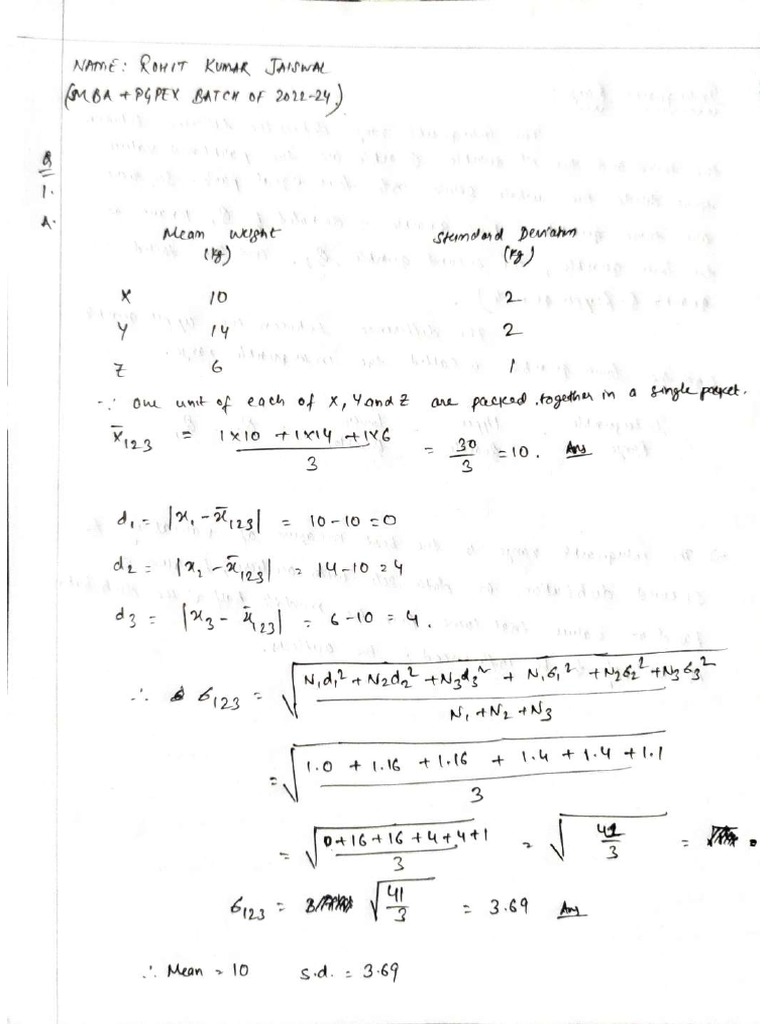 NAME: ROHIT KUMAR JAISWAL
(SMBA + PGPEX BATCH OF 2022-24)
Q
1.
A.
Mean Weight Standard Deviation
(kg) (kg)
X 10 2
Y 14 2
Z 6 1
∵ one unit of each of X, Y and Z are packed together in a single packet.
x̄123 = (1×10 + 1×14 + 1×6)/3 = 30/3 = 10. Ans
d1 = |x1 - x̄123| = 10-10 = 0
d2 = |x2 - x̄123| = 14-10 = 4
d3 = |x3 - x̄123| = 6-10 = 4.
∴ σ123 = √((N1d1² + N2d2² + N3d3² + N1σ1² + N2σ2² + N3σ3²)/(N1 + N2 + N3))
= √((1.0 + 1.16 + 1.16 + 1.4 + 1.4 + 1.1)/3)
= √((0+16+16+4+4+1)/3) = √(41/3) =
σ123 = √(41/3) = 3.69 Ans
∴ Mean = 10 s.d. = 3.69